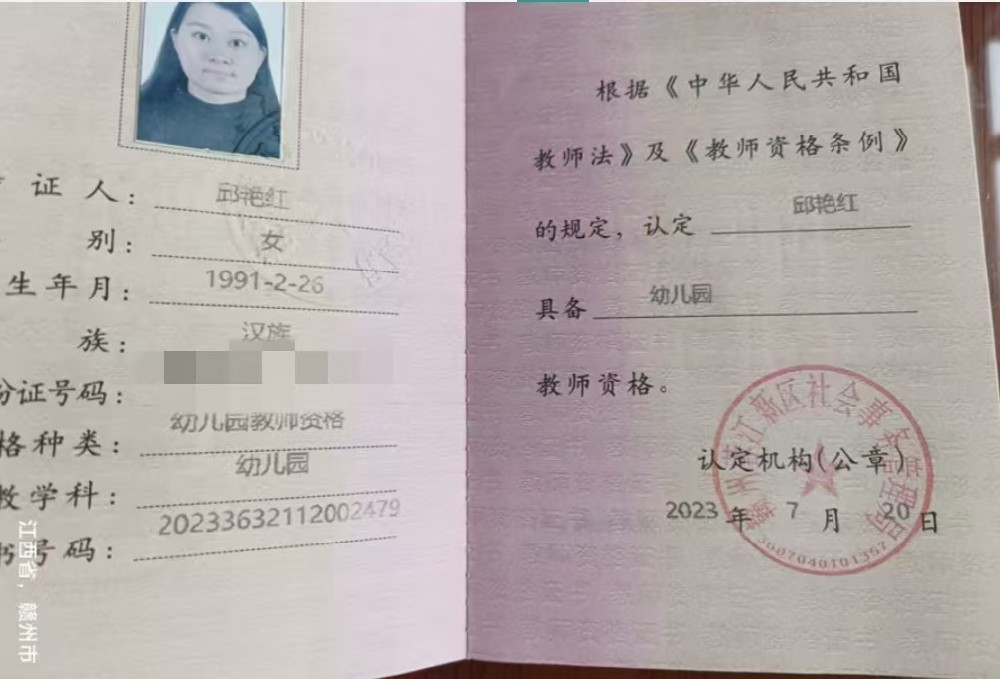 证人：邱艳红
别：女
生年月：1991-2-26
族：汉族
份证号码：
格种类：幼儿园教师资格
教学科：幼儿园
书号码：20233632112002479
江西省，赣州市
根据《中华人民共和国
教师法》及《教师资格条例》
的规定，认定 邱艳红
具备 幼儿园
教师资格。
认定机构(公章)
2023年7月20日
江新区社会事务管理局
3607040101357